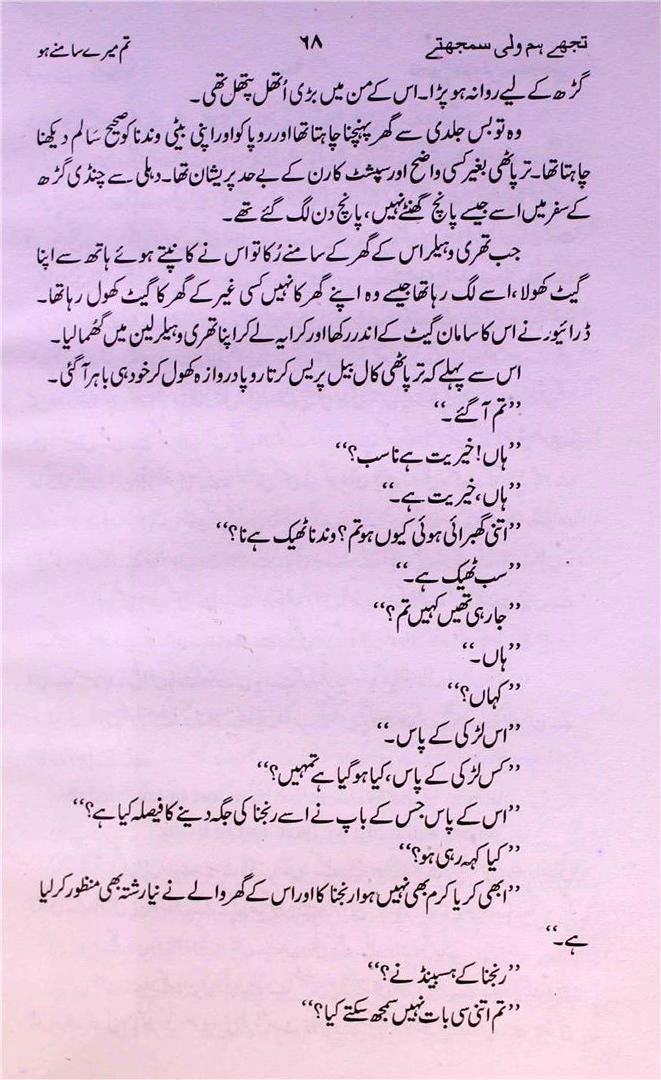 تجھے ہم ولی سمجھتے ۶۸ تم میرے سامنے ہو
گڑھ کے لیے روانہ ہو پڑا۔ اس کے من میں بڑی اُتھل پتھل تھی۔
وہ تو بس جلدی سے گھر پہنچنا چاہتا تھا اور روپا کو اور اپنی بیٹی وندنا کو صحیح سَالم دیکھنا
چاہتا تھا۔ ترپاٹھی بغیر کسی واضح اور سپشٹ کارن کے بے حد پریشان تھا۔ دہلی سے چنڈی گڑھ
کے سفر میں اسے جیسے پانچ گھنٹے نہیں، پانچ دن لگ گئے تھے۔
جب تھری وہیلر اس کے گھر کے سامنے رُکا تو اس نے کانپتے ہوئے ہاتھ سے اپنا
گیٹ کھولا، اسے لگ رہا تھا جیسے وہ اپنے گھر کا نہیں کسی غیر کے گھر کا گیٹ کھول رہا تھا۔
ڈرائیور نے اس کا سامان گیٹ کے اندر رکھا اور کرایہ لے کر اپنا تھری وہیلر لین میں گھُما لیا۔
اس سے پہلے کہ ترپاٹھی کال بیل پریس کرتا روپا دروازہ کھول کر خود ہی باہر آ گئی۔
’’تم آ گئے۔‘‘
’’ہاں! خیریت ہے نا سب؟‘‘
’’ہاں، خیریت ہے۔‘‘
’’اتنی گھبرائی ہوئی کیوں ہو تم؟ وندنا ٹھیک ہے نا؟‘‘
’’سب ٹھیک ہے۔‘‘
’’جا رہی تھیں کہیں تم؟‘‘
’’ہاں۔‘‘
’’کہاں؟‘‘
’’اس لڑکی کے پاس۔‘‘
’’کس لڑکی کے پاس، کیا ہو گیا ہے تمہیں؟‘‘
’’اس کے پاس جس کے باپ نے اسے رنجنا کی جگہ دینے کا فیصلہ کیا ہے؟‘‘
’’کیا کہہ رہی ہو؟‘‘
’’ابھی کریا کرم بھی نہیں ہوا رنجنا کا اور اس کے گھر والے نے نیا رشتہ بھی منظور کر لیا
ہے۔‘‘
’’رنجنا کے ہسبینڈ نے؟‘‘
’’تم اتنی سی بات نہیں سمجھ سکتے کیا؟‘‘